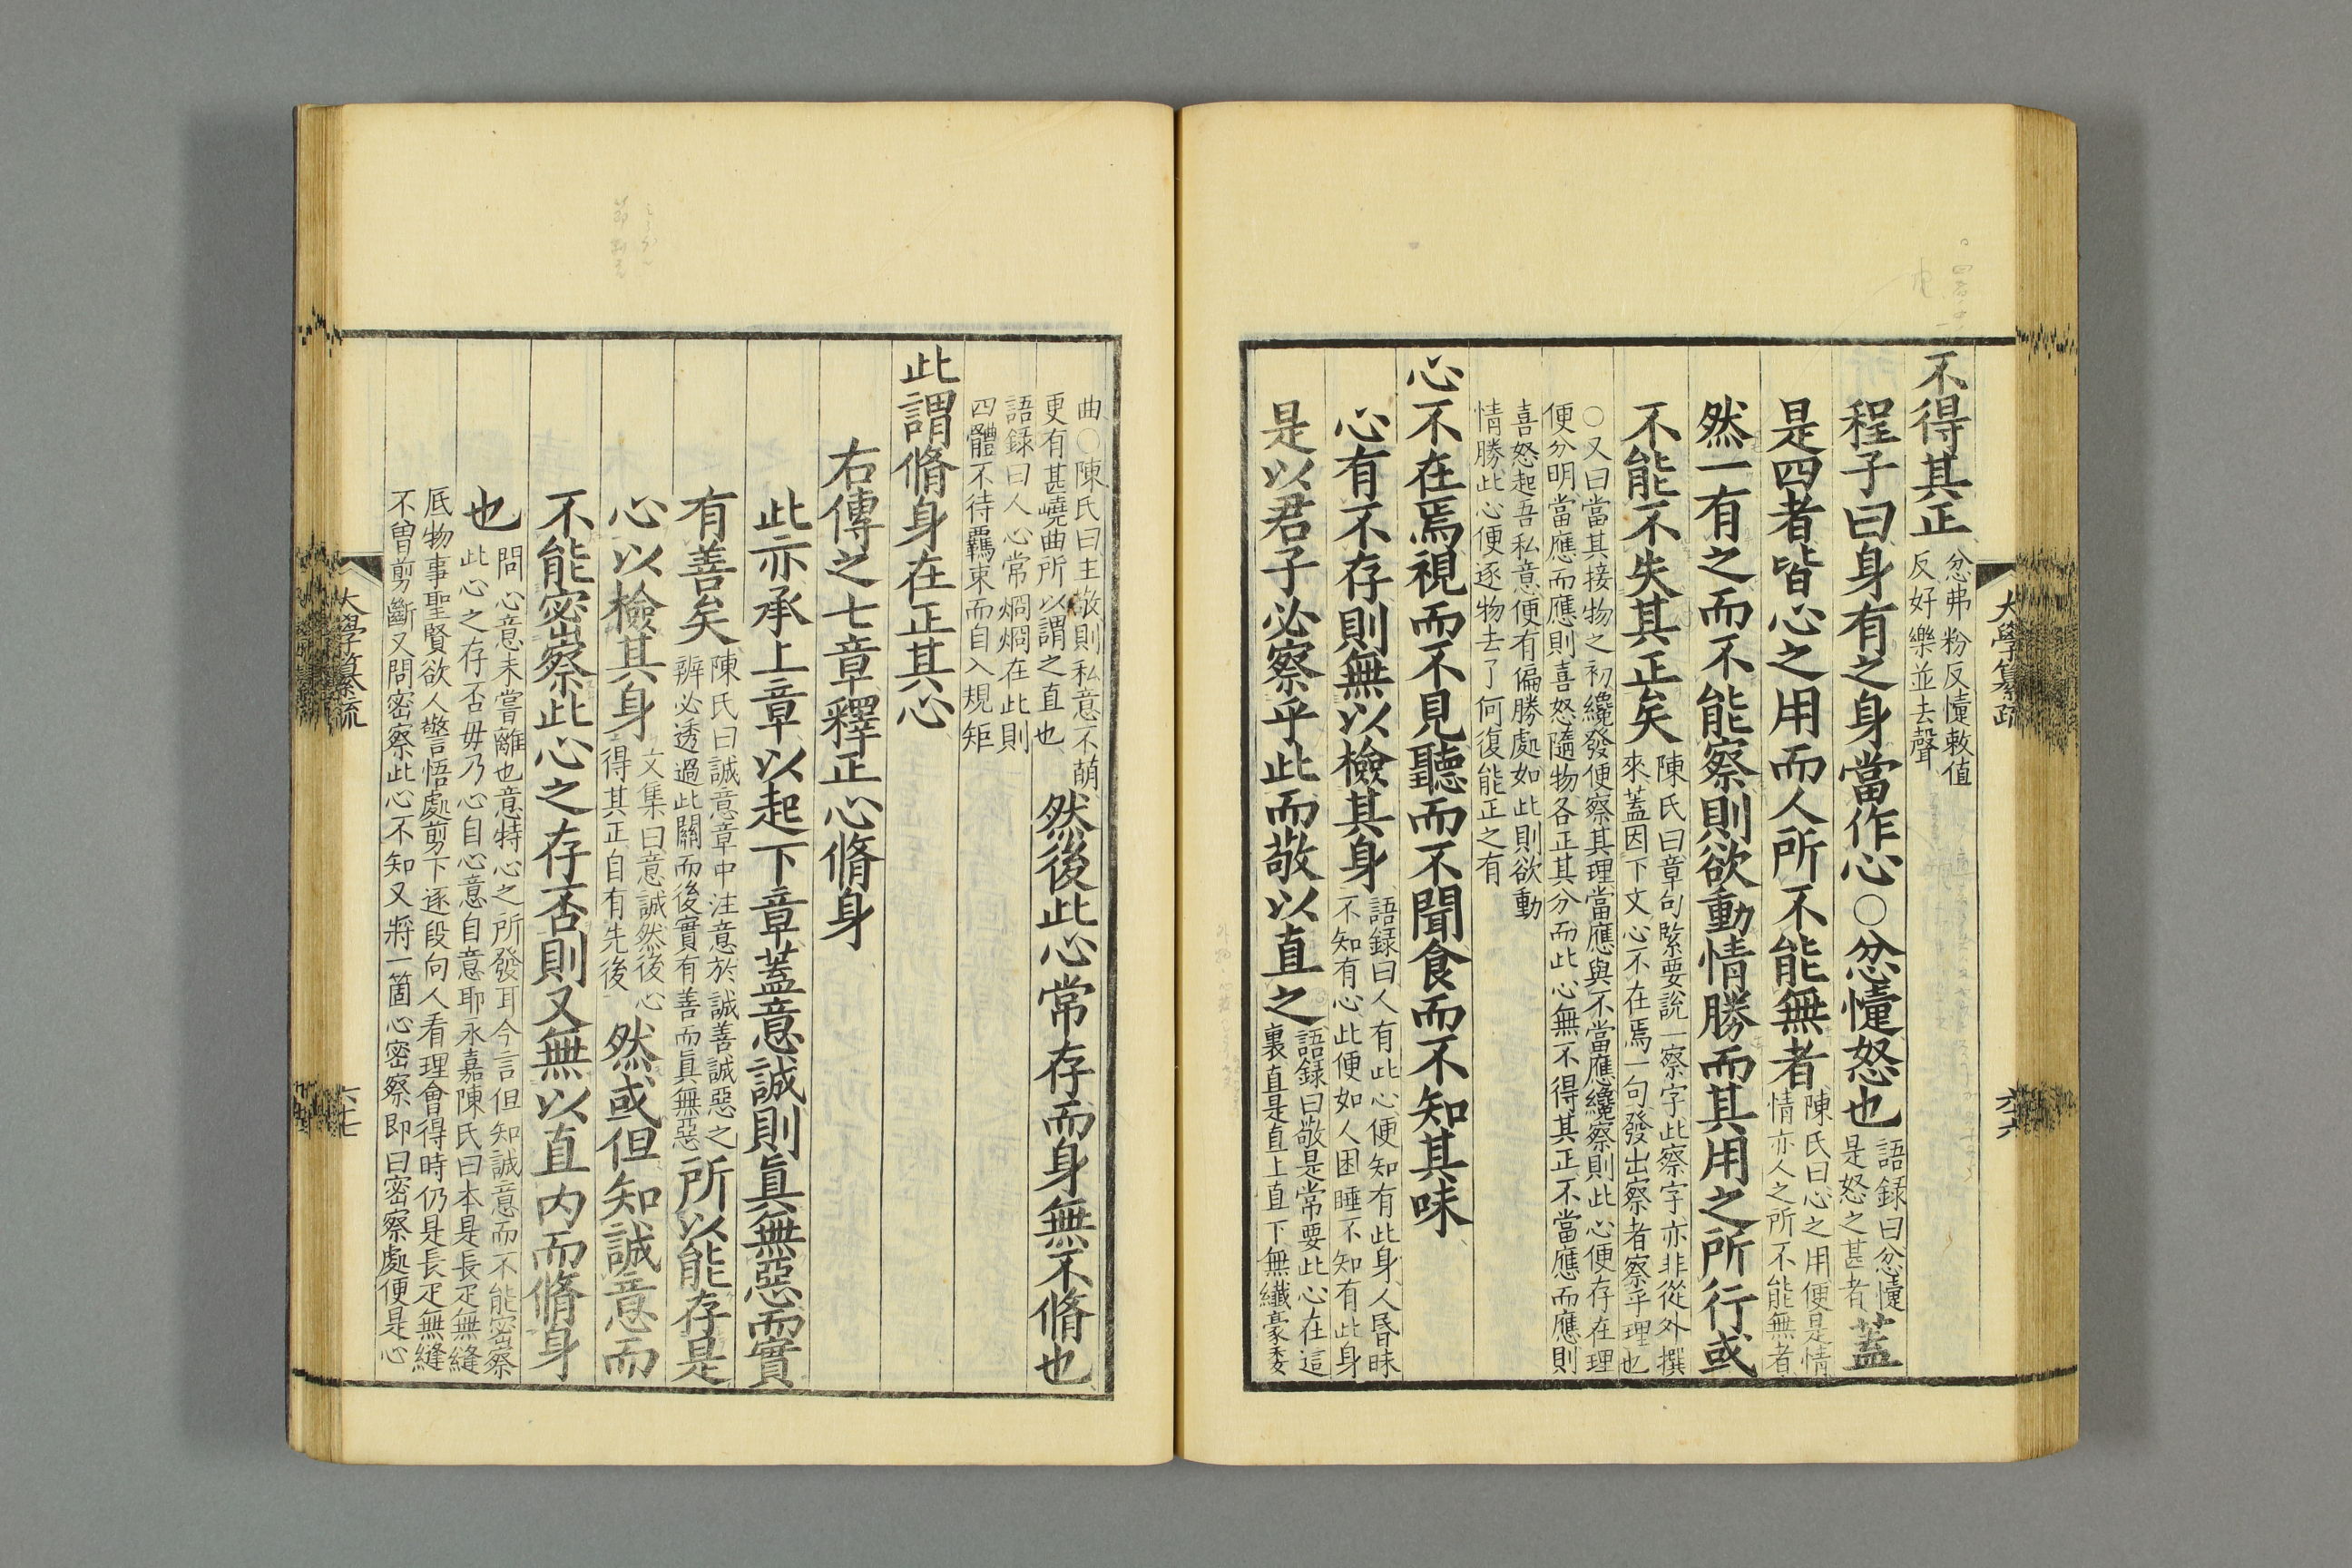 不得其正忿弗粉反懥敕值
反好樂並去聲
程子曰身有之身當作心○忿懥怒也語録曰忿懥
是怒之甚者蓋
是四者皆心之用而人所不能無者陳氏曰心之用便是情
情亦人之所不能無者
然一有之而不能察則欲動情勝而其用之所行或
不能不失其正矣陳氏曰章句緊要說一察字此察字亦非從外撰
來蓋因下文心不在焉一句發出察者察乎理也
○又曰當其接物之初纔發便察其理當應與不當應纔察則此心便存在理
便分明當應而應則喜怒隨物各正其分而此心無不得其正不當應而應則
喜怒起吾私意便有偏勝處如此則欲動
情勝此心便逐物去了何復能正之有
心不在焉視而不見聽而不聞食而不知其味
心有不存則無以檢其身語録曰人有此心便知有此身人昏昧
不知有心此便如人困睡不知有此身
是以君子必察乎此而敬以直之語録曰敬是常要此心在這
裏直是直上直下無纖豪委
大學纂疏
六六
曲○陳氏曰主敬則私意不萌
更有甚嶢曲所以謂之直也然後此心常存而身無不脩也
語録曰人心常烱烱在此則
四體不待羈束而自入規矩
此謂脩身在正其心
右傳之七章釋正心脩身
此亦承上章以起下章蓋意誠則眞無惡而實
有善矣陳氏曰誠意章中注意於誠善誠惡之
辨必透過此關而後實有善而眞無惡所以能存是
心以檢其身文集曰意誠然後心
得其正自有先後然或但知誠意而
不能密察此心之存否則又無以直内而脩身
也問心意未嘗離也意特心之所發耳今言但知誠意而不能密察
此心之存否毋乃心自心意自意耶永嘉陳氏曰本是長疋無縫
底物事聖賢欲人警悟處剪下逐段向人看理會得時仍是長疋無縫
不曽剪斷又問密察此心不知又將一箇心密察即曰密察處便是心
大學纂疏
六七